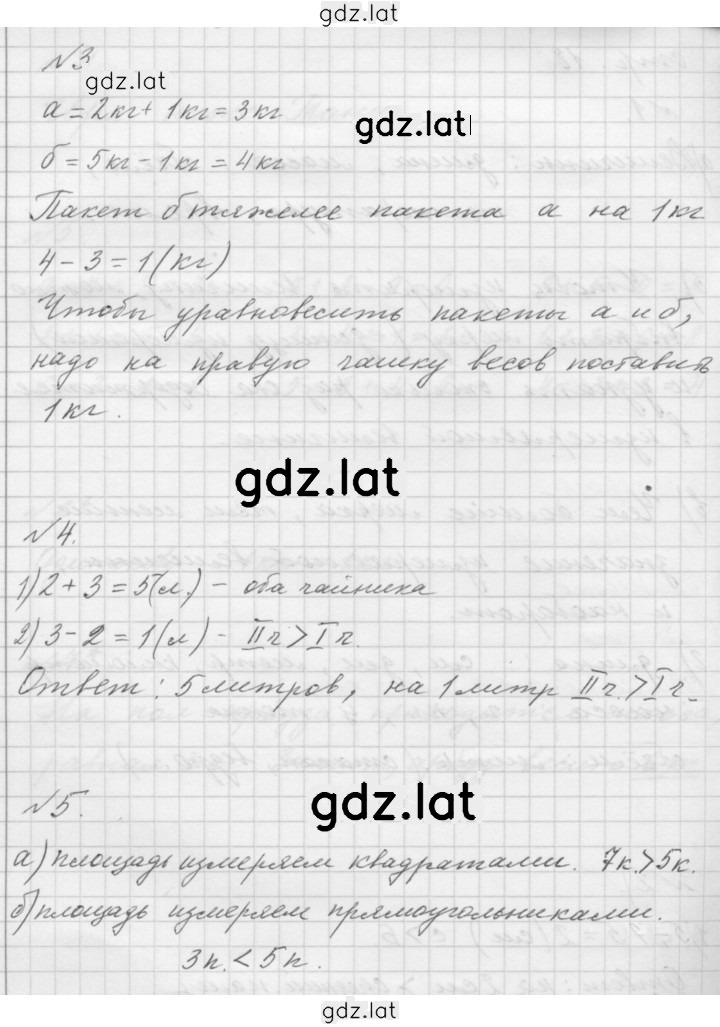 gdz.lat
№3
gdz.lat
а = 2кг + 1кг = 3кг
gdz.lat
б = 5кг - 1кг = 4кг
Пакет б тяжелее пакета а на 1кг
4 - 3 = 1(кг)
Чтобы уравновесить пакеты а и б,
надо на правую чашку весов поставить
1кг.
gdz.lat
№4.
1) 2 + 3 = 5(л) - оба чайника
2) 3 - 2 = 1(л) - IIч > Iч.
Ответ: 5 литров, на 1 литр IIч. > Iч.
gdz.lat
№5.
а) площадь измеряем квадратами. 7к. > 5к.
б) площадь измеряем прямоугольниками.
3п. < 5п.
gdz.lat